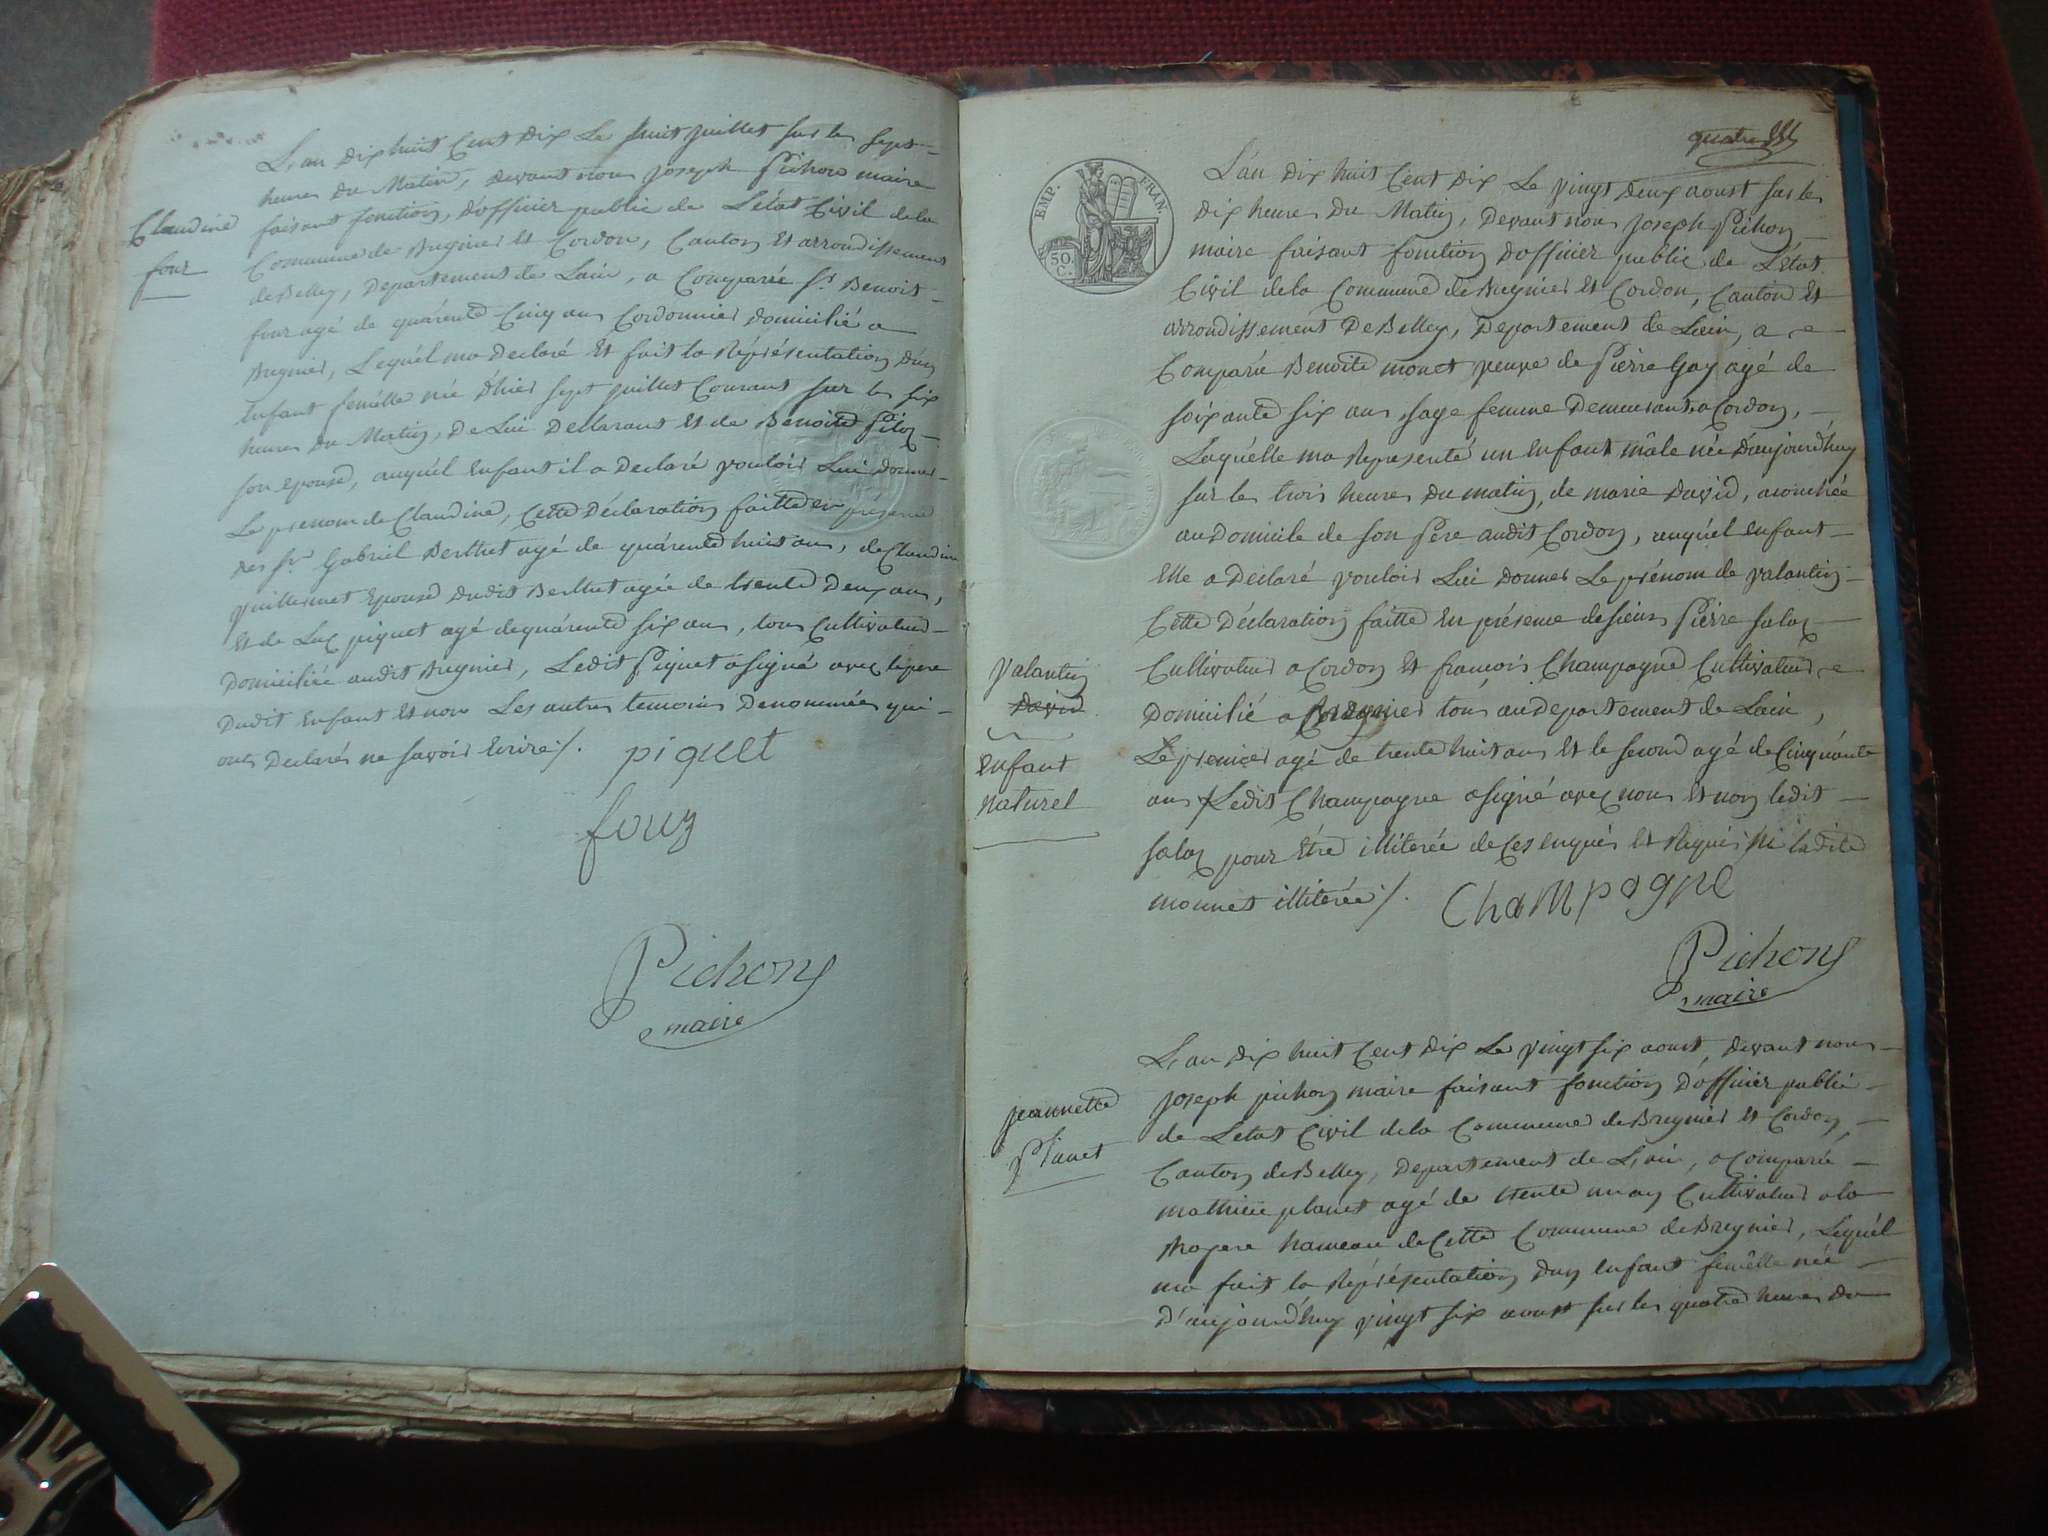 L'an dix huit Cent dix Le huit juillet sur les sept
heures du Matin, devant nous joseph Pichon maire
faisant fonction, d'officier public de L'état Civil de la
Commune de Bregnier Et Cordon, Canton Et arrondissement
de Belley, Departement de Lain, a Comparu Sr Benoit
four agé de quárente Cinq ans Cordonnier domicilié a
Bregnier, Lequél ma Declaré Et fait la Représentation d'un
Enfant femélle née d'hier sept juillet Courant sur les six
heures du Matin, de Lui Declarant Et de Benoite
son epouse, auquél Enfant il a Declaré vouloir Lui donner
Le prenom de Claudine, Cette Déclaration faitte en présence
des Sr Gabriel Berthet agé de quárente huit ans, de Claudine
vuillermet Epouse dudit Berthet agée de trente Deux ans,
Et de Luc piquet agé de quárente six ans, tous Cultivateurs
Domiciliée audit Bregnier, Ledit Piquet a signé avec le pere
Dudit Enfant Et nous Les autres temoins Denommées qui
ont Declarés ne savoir Ecrire /.
piquet
four
Pichon
maire
Claudine
four
quatre
EMP. FRAN.
50.
C.
L'an dix huit Cent dix Le vingt deux aoust sur les
dix heures du Matin, devant nous joseph Pichon
maire faisant fonction d'officier public de L'état
Civil de la Commune de Bregnier Et Cordon, Canton Et
arrondissement De Belley, Departement de Lain, a
Comparu Benoite monet veuve de Pierre Gay agé de
soixante six ans, sage femme Demeurant a Cordon,
Laquélle ma Représenté un Enfant mâle née d'aujourd'huy
sur les trois heures du matin, de marie David, acouchée
au Domicile de son Pere audit Cordon, auquél Enfant
Elle a Declaré vouloir Lui donner Le prénom de valantin
Cette Déclaration faitte En présence de sieur Pierre salaz
Cultivateur a Cordon Et francois Champagne Cultivateur
Domicilié a Bregnier tous au departement de Lain,
Le premier agé de trente huit ans Et le second agé de Cinquánte
ans Ledit Champagne a signé avec nous Et non ledit
salaz pour Etre illiterée de Ces enquis Et Requis ni ladite
monnet illiterée /.
Champagne
Pichon
maire
valantin
David
Enfant
naturel
L'an dix huit Cent dix Le vingt six aoust, devant nous
joseph pichon maire faisant fonction d'officier public
de L'etat Civil de la Commune de Bregnier Et Cordon,
Canton de Belley, Departement de L'ain, a Comparu
mathieu planet agé de trente un an Cultivateur a la
hameau de Cette Commune de Bregnier, Lequél
ma fait la Représentation d'un Enfant femélle née
d'aujourd'huy vingt six aoust sur les quatre heures du
jeannette
Planet